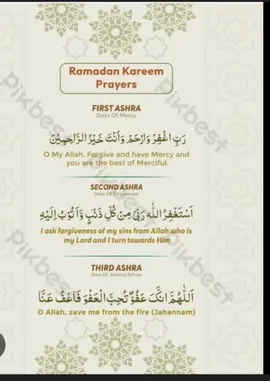 Ramadan Kareem
Prayers
FIRST ASHRA
Dass Of Mercy
رَبِّ اغْفِرْ وَارْحَمْ وَأَنْتَ خَيْرُ الرَّاحِمِيْنَ
O My Allah. Forgive and have Mercy and
you are the best of Merciful.
SECOND ASHRA
اَسْتَغْفِرُ اللهَ رَبِّيْ مِنْ كُلِّ ذَنْبٍ وَّاَتُوْبُ اِلَيْهِ
I ask forgiveness of my sins from Allah who is
my Lord and I turn towards Him
THIRD ASHRA
اَللّٰهُمَّ اِنَّكَ عَفُوٌّ تُحِبُّ الْعَفْوَ فَاعْفُ عَنَّا
O Allah, save me from the fire (Jahannam)
Pikbest